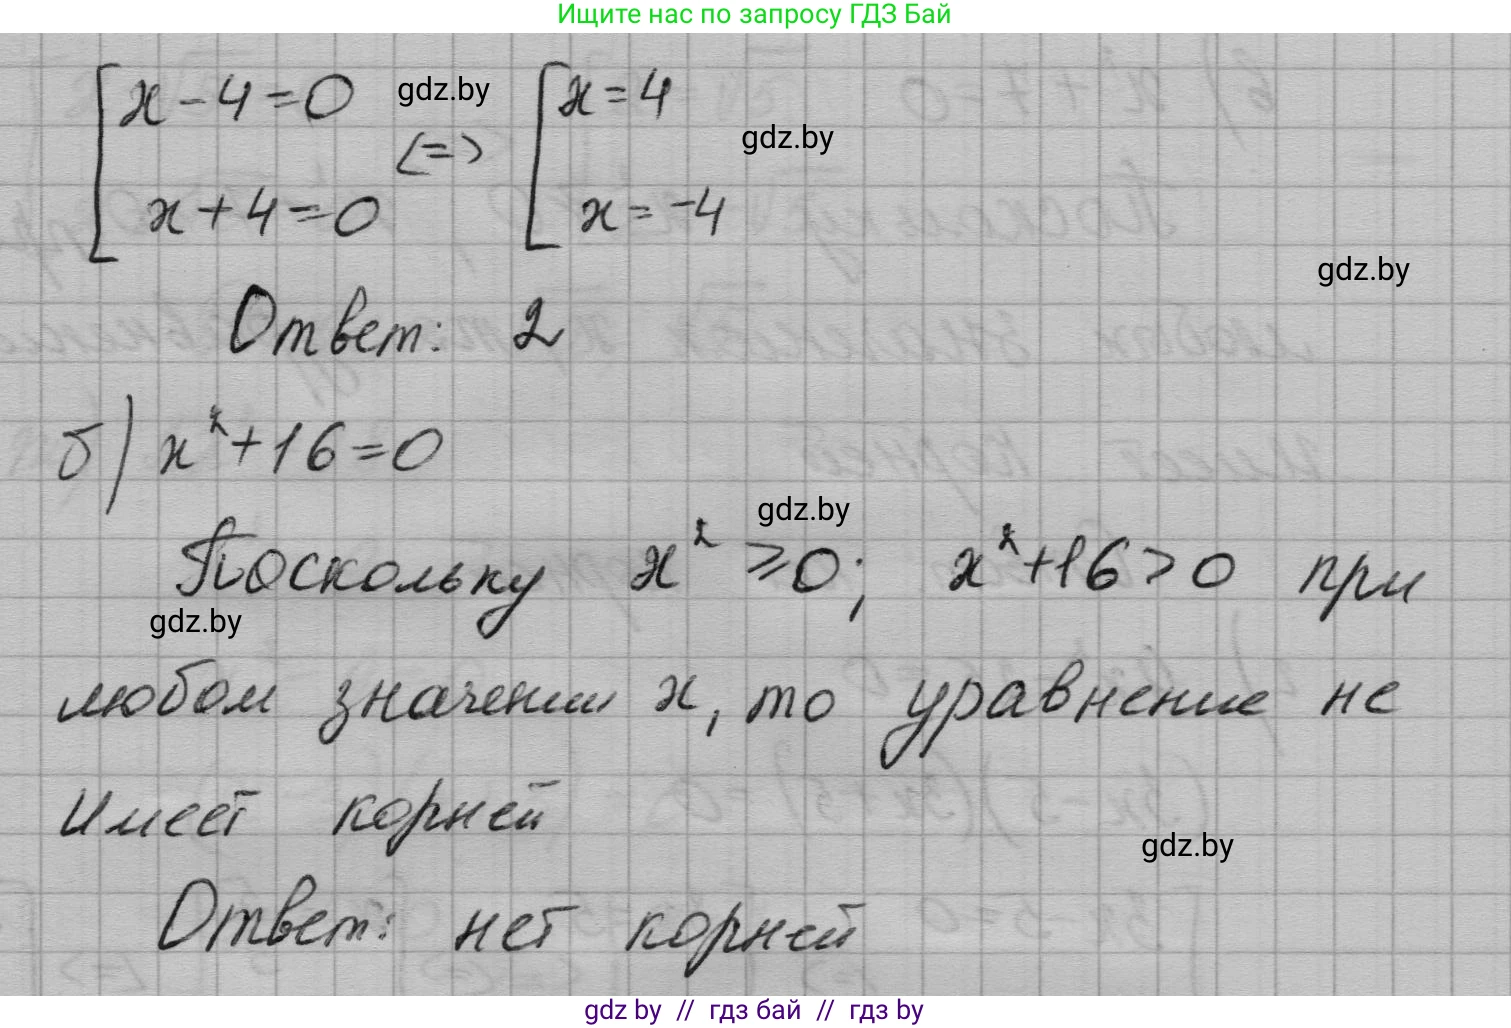 Ищите нас по запросу ГДЗ Бай
[x-4=0 gdz.by [x=4
<=> gdz.by
x+4=0 x=-4
gdz.by
Ответ: 2
б) x²+16=0
gdz.by
Поскольку x²⩾0; x²+16>0 при
gdz.by
любом значении x, то уравнение не
имеет корней
gdz.by
Ответ: нет корней
gdz by // гдз бай // гдз by